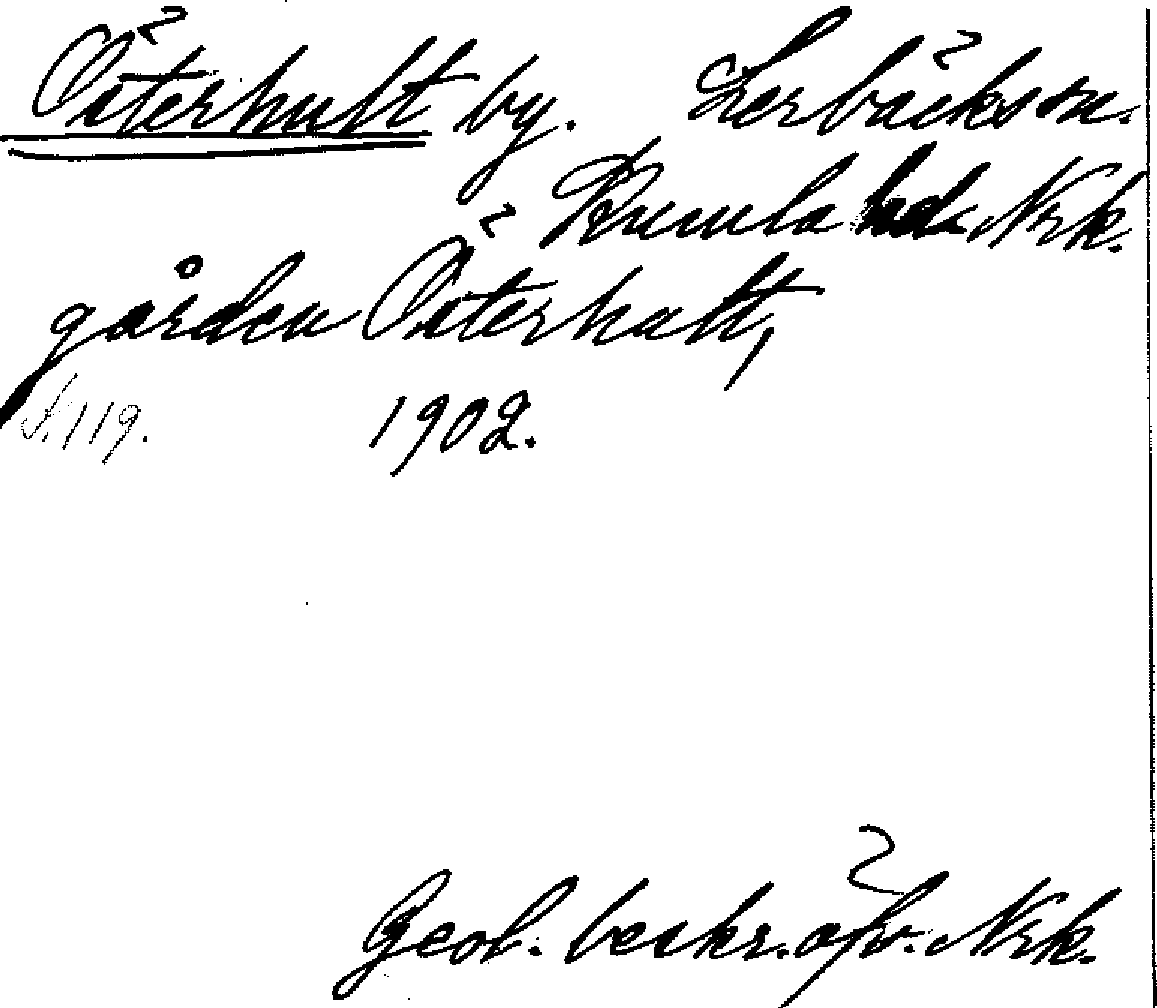 Österhult by. Lerbäcks sn.
Kumla hd. Nrk.
gården Österhult,
S. 119. 1902.
Geol. beskr. öfv. Nrk.